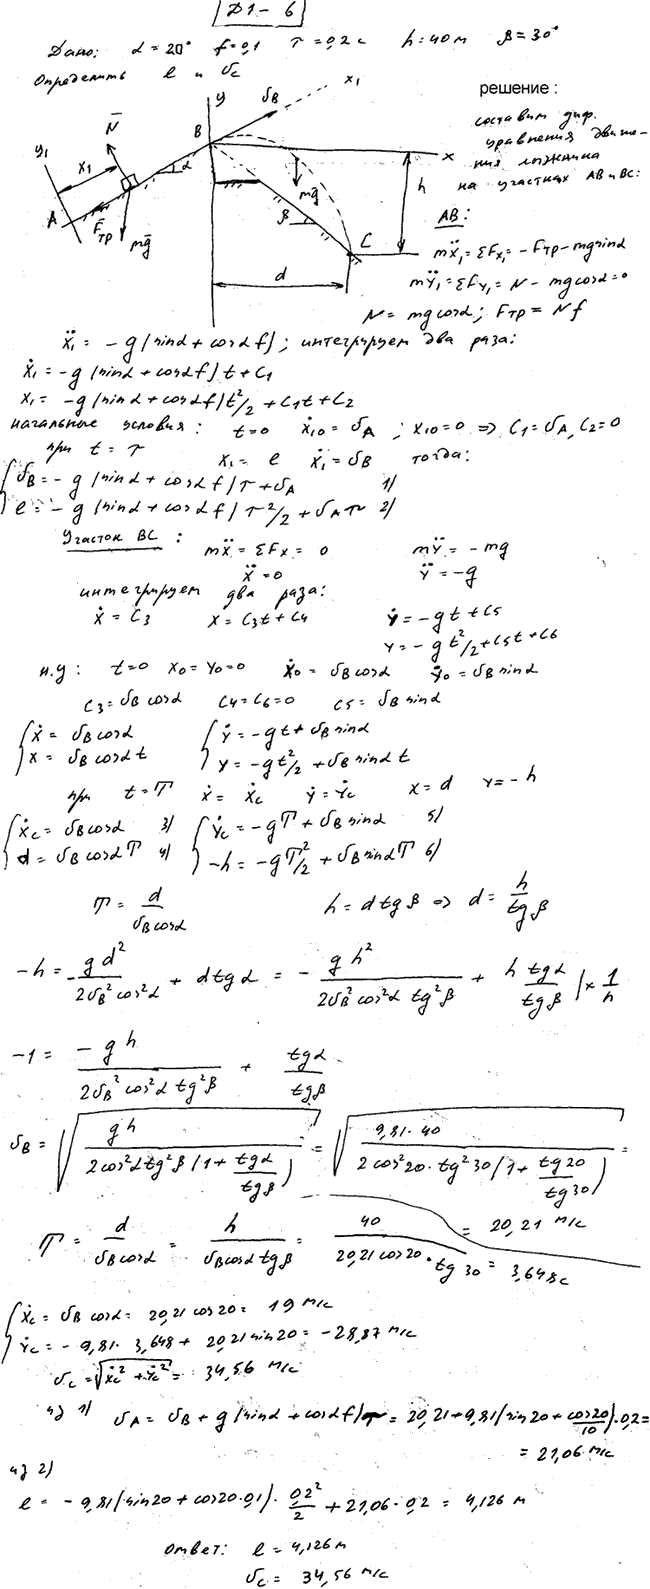 Д1-6
Дано: α = 20° f = 0,1 τ = 0,2 с h = 40 м β = 30°
Определить l и υc
решение :
составим диф.
уравнения движе-
ния лыжника
на участках AB и BC:
y υB x1
B
y1 N̄ x
x1 α
mḡ h
A β
Fтр mḡ C
d
AB:
mẍ1 = ΣFx1 = -Fтр - mg sinα
mÿ1 = ΣFy1 = N - mg cosα = 0
N = mg cosα ; Fтр = Nf
ẍ1 = -g(sinα + cosα f) ; интегрируем два раза:
ẋ1 = -g(sinα + cosα f)t + C1
x1 = -g(sinα + cosα f)t²/2 + C1t + C2
начальные условия : t=0 ẋ10 = υA ; x10 = 0 => C1 = υA, C2 = 0
при t = τ x1 = l ẋ1 = υB тогда:
υB = -g(sinα + cosα f)τ + υA 1)
l = -g(sinα + cosα f)τ²/2 + υA τ 2)
Участок BC :
mẍ = ΣFx = 0 mÿ = -mg
ẍ = 0 ÿ = -g
интегрируем два раза:
ẋ = C3 x = C3t + C4 ẏ = -gt + C5
y = -gt²/2 + C5t + C6
н.у : t=0 x0 = y0 = 0 ẋ0 = υB cosα ẏ0 = υB sinα
C3 = υB cosα C4 = C6 = 0 C5 = υB sinα
ẋ = υB cosα ẏ = -gt + υB sinα
x = υB cosα t y = -gt²/2 + υB sinα t
при t = T ẋ = ẋc ẏ = ẏc x = d y = -h
ẋc = υB cosα 3) ẏc = -gT + υB sinα 5)
d = υB cosα T 4) -h = -gT²/2 + υB sinα T 6)
T = d/(υB cosα) h = d tgβ => d = h/tgβ
-h = -gd²/(2υB² cos²α) + d tgα = -gh²/(2υB² cos²α tg²β) + h tgα/tgβ | × 1/h
-1 = -gh/(2υB² cos²α tg²β) + tgα/tgβ
υB = √(gh/(2cos²α tg²β(1 + tgα/tgβ))) = √(9,81·40/(2cos²20·tg²30(1 + tg20/tg30))) =
= 20,21 м/с
T = d/(υB cosα) = h/(υB cosα tgβ) = 40/(20,21 cos20·tg30) = 3,648 с
ẋc = υB cosα = 20,21 cos20 = 19 м/с
ẏc = -9,81·3,648 + 20,21 sin20 = -28,87 м/с
υc = √(ẋc² + ẏc²) = 34,56 м/с
из 1) υA = υB + g(sinα + cosα f)τ = 20,21 + 9,81(sin20 + cos20/10)·0,2 =
= 21,06 м/с
из 2)
l = -9,81(sin20 + cos20·0,1)·0,2²/2 + 21,06·0,2 = 4,126 м
ответ: l = 4,126 м
υc = 34,56 м/с